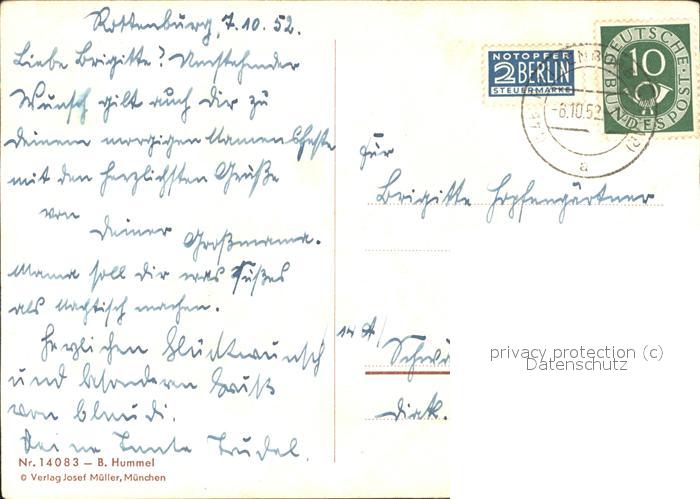 Rottenburg, 7.10.52.
Liebe Brigitte! Umstehender
Wunsch gilt auch Dir zu
Deinem morgigen Namensfeste
mit den herzlichsten Grüße
von
Deiner Großmama.
Mama soll Dir was Süßes
als Nachtisch machen.
Herzlichen Glückwunsch
und besonderen Gruß
von Claudi.
Deine Tante Trudel.
Nr. 14083 — B. Hummel
© Verlag Josef Müller, München
NOTOPFER
2 BERLIN
STEUERMARKE
DEUTSCHE
BUNDESPOST
10
-8.10.52
a
Für
Brigitte Hopfengärtner
14 a
Schwä
Direk.
privacy protection (c)
Datenschutz